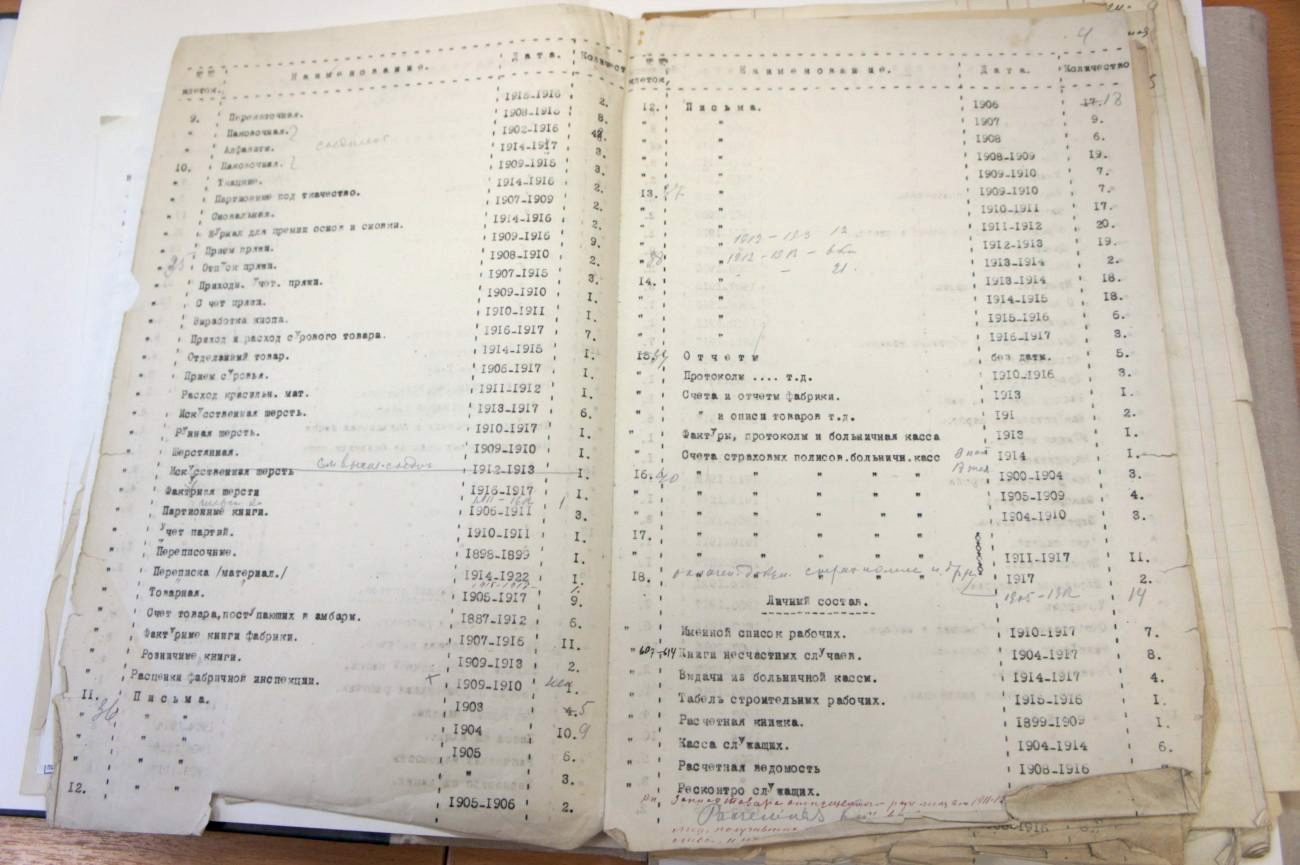 №№ Наименование. Дата. Количест
плеток.
1915-1916 2.
9. Перемоточная. 1908-1915 8.
" Паковочная. 1902-1916
" Алфавиты. 1914-1917 3.
10. Паковочная. 1909-1915 3.
" Ткацкие. 1914-1916 2.
" Партионные код ткачество. 1907-1909 2.
" Сновальная. 1914-1916 2.
" Журнал для премии основ и сновки. 1909-1916 9.
" Прием пряжи. 1908-1910 2.
" Отпуск пряжи. 1907-1915 3.
" Приходн. Учет. пряжи. 1909-1910 I.
" С чет пряжи. 1910-1911 I.
" Выработка кнопа. 1916-1917 7.
" Приход и расход сурового товара. 1914-1915 I.
" Отделанный товар. 1906-1917 I.
" Прием суровья. 1911-1912 I.
" Расход красильн. мат. 1913-1917 6.
" Искусственная шерсть. 1910-1917 I.
" Рунная шерсть. 1909-1910 I.
" Шерстянная. 1912-1913 I.
" Искусственная шерсть 1916-1917 I.
" Фактурная шерсти 1906-1911 3.
" Партионные книги. 1910-1911 I.
" Учет партий. 1898-1899 I.
" Переписочные. 1914-1922 I.
" Переписка /материал./ 1905-1917 9.
" Товарная. 1887-1912 6.
" Счет товара,поступающих в амбары. 1907-1916 II.
" Фактурные книги фабрики. 1909-1913 2.
" Розничные книги. 1909-1910 I.
" Расценки фабричной инспекции. 1903 4. 5
11. 36 Письма. 1904 10. 9
" " " 1905 6.
" " " " 3.
12. " " 1905-1906 2.
4
№№ Наименование. Дата. Количество
плеток.
12. Письма. 1906 17. 18
" " 1907 9.
" " 1908 6.
" " 1908-1909 19.
" " 1909-1910 7.
13. " 1909-1910 7.
" " 1910-1911 17.
" " 1911-1912 20.
" " 1912-1913 19.
" " 1913-1914 2.
14. " 1913-1914 18.
" " 1914-1915 18.
" " 1915-1916 6.
" " 1916-1917 3.
15. Отчеты без даты. 5.
" Протоколы .... т.д. 1910-1916 3.
" Счета и отчеты фабрики. 1913 I.
" " и описи товаров т.д. 191 2.
" Фактуры, протоколы и больничная касса 1913 I.
" Счета страховых полисов.больничн.касс 1914 I.
16. " " " " " 1900-1904 3.
" " " " " " 1905-1909 4.
" " " " " " 1904-1910 3.
17. " " " " " 1911-1917 II.
18. " " " 1917 2.
1905-1912 14
Личный состав.
" Именной список рабочих. 1910-1917 7.
" 607-614 Книги несчастных случаев. 1904-1917 8.
" Выдачи из больничной кассы. 1914-1917 4.
" Табель строительных рабочих. 1915-1916 I.
" Расчетная книжка. 1899-1909 I.
" Касса служащих. 1904-1914 6.
" Расчетная ведомость 1908-1916
" Ресконтро служащих.